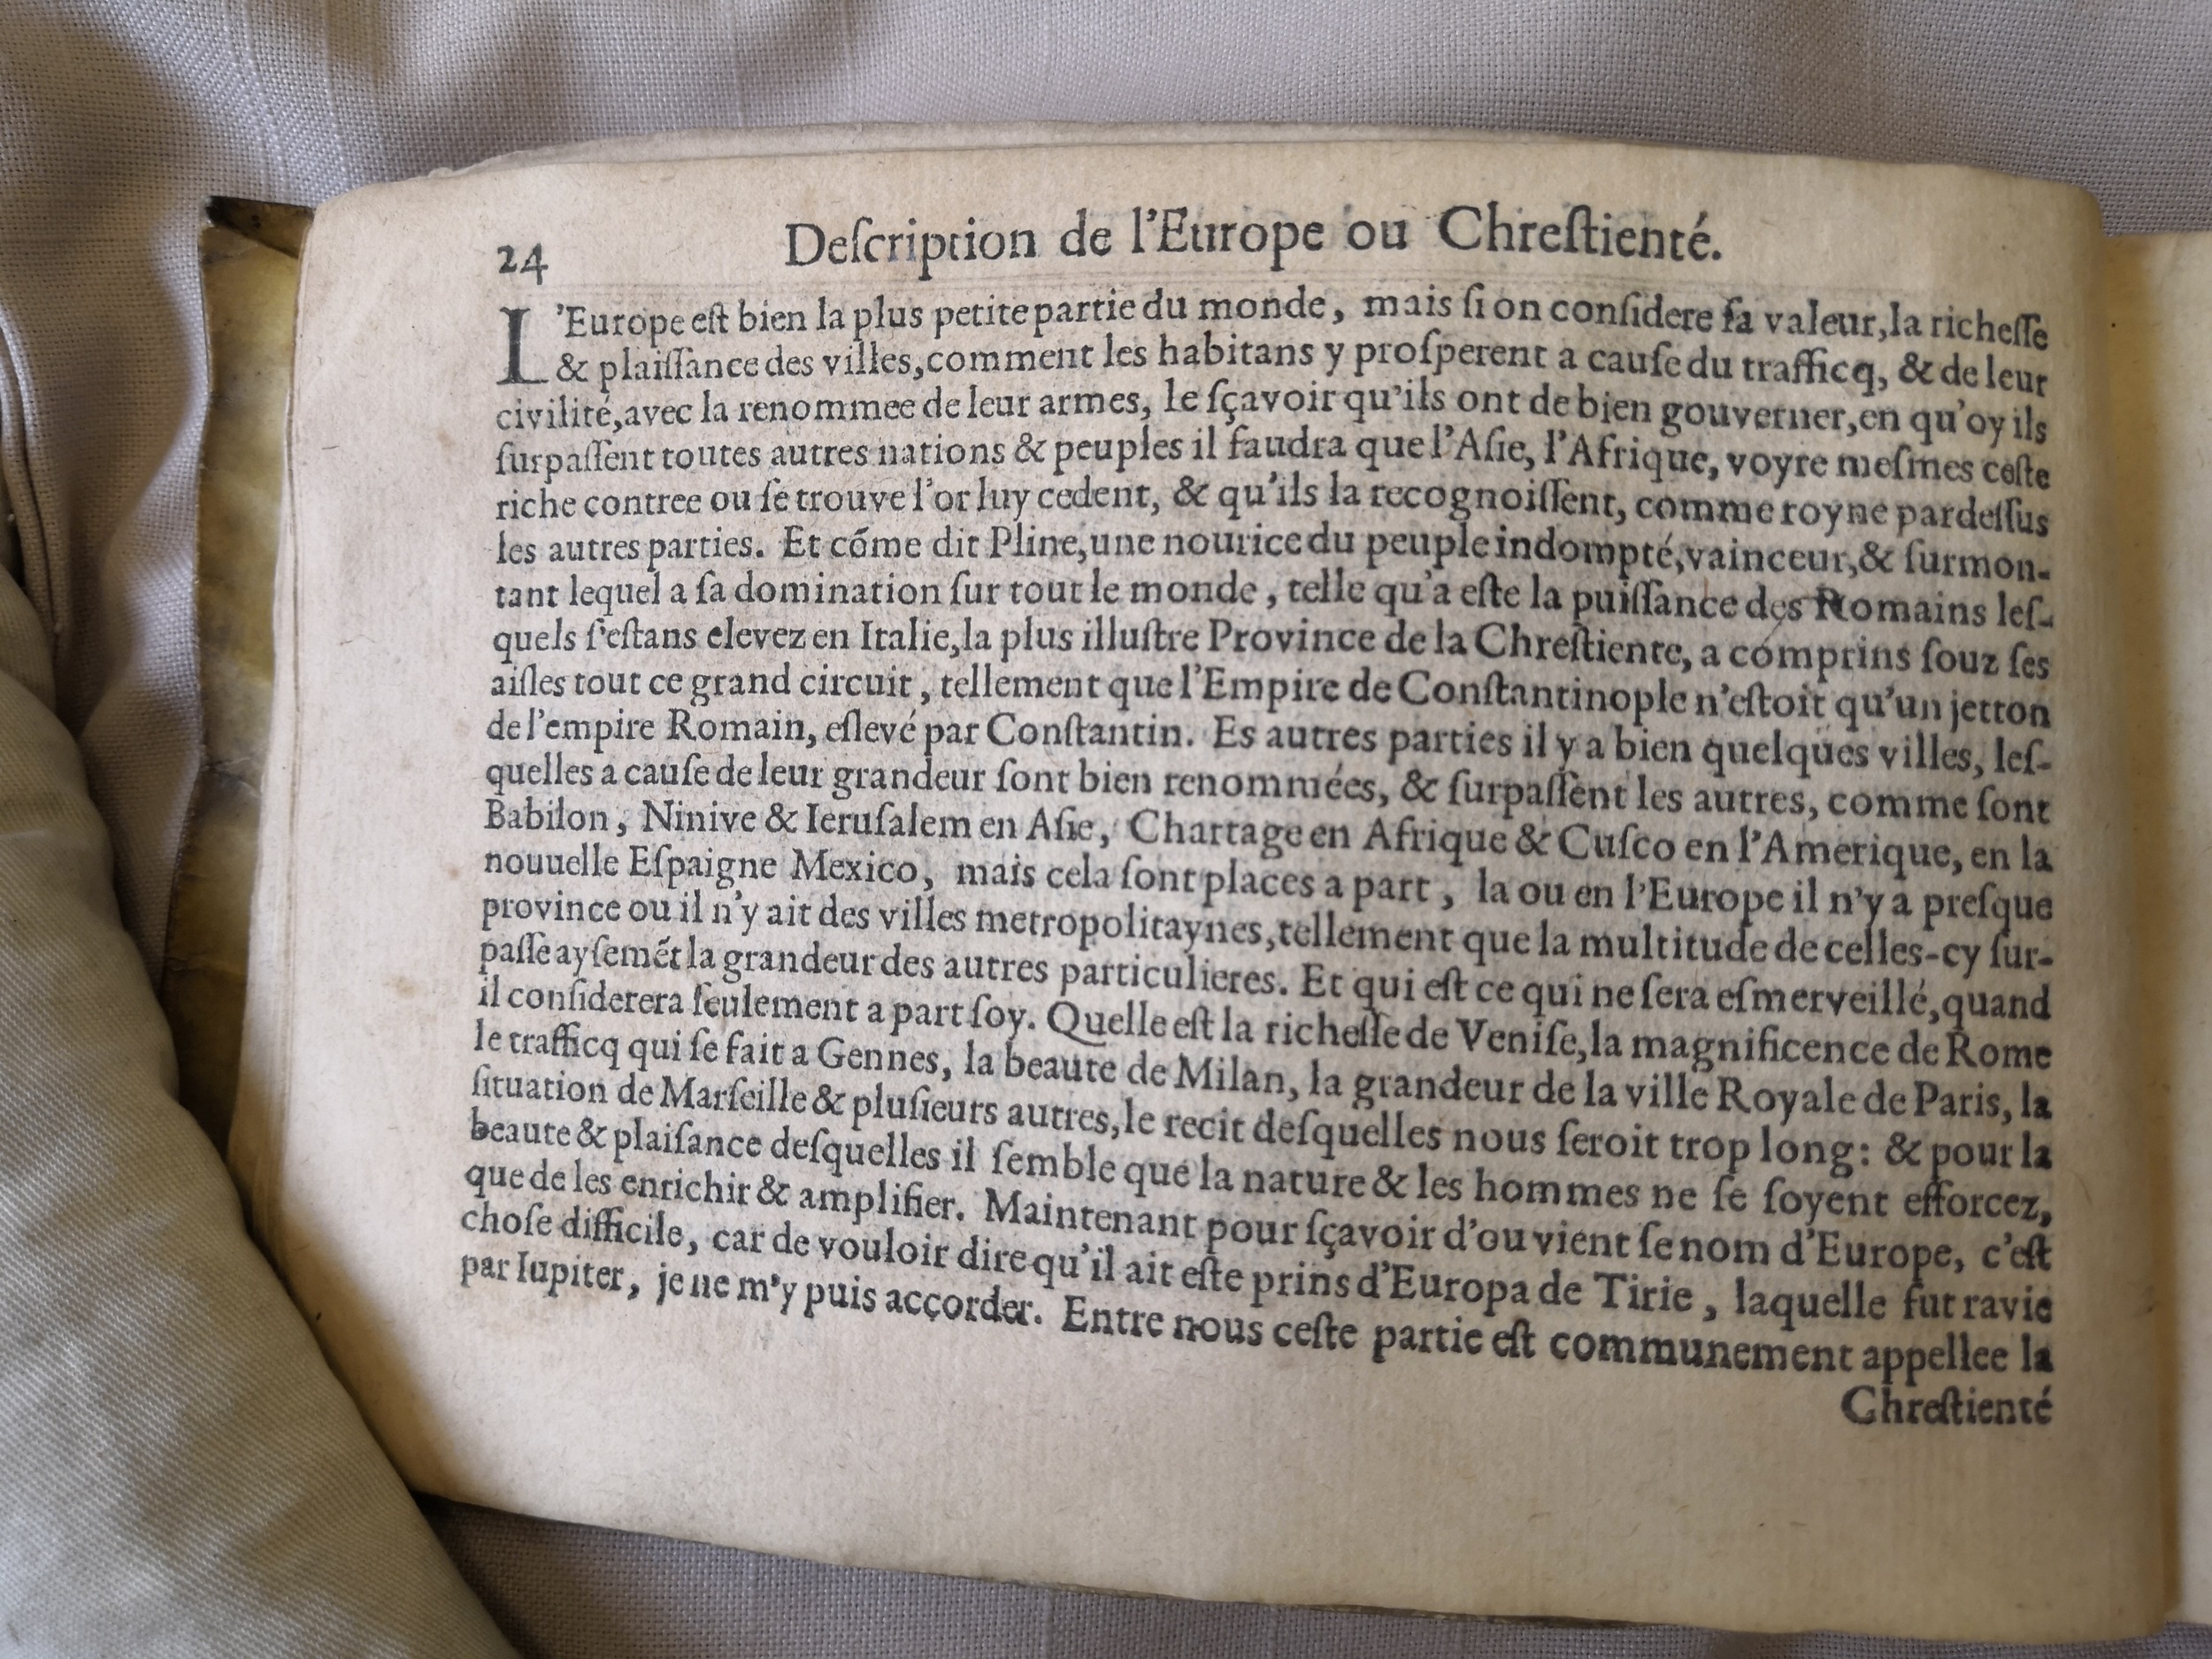 24 Deſcription de l'Europe ou Chreſtienté.
L'Europe eſt bien la plus petite partie du monde, mais ſi on conſidere ſa valeur, la richeſſe
& plaiſſance des villes, comment les habitans y proſperent a cauſe du trafficq, & de leur
civilité, avec la renommee de leur armes, le ſçavoir qu'ils ont de bien gouverner, en qu'oy ils
ſurpaſſent toutes autres nations & peuples il faudra que l'Aſie, l'Afrique, voyre meſmes ceſte
riche contree ou ſe trouve l'or luy cedent, & qu'ils la recognoiſſent, comme royne pardeſſus
les autres parties. Et cõme dit Pline, une nourice du peuple indompté, vainceur, & ſurmon-
tant lequel a ſa domination ſur tout le monde, telle qu'a eſte la puiſſance des Romains leſ-
quels ſ'eſtans elevez en Italie, la plus illuſtre Province de la Chreſtiente, a comprins ſouz ſes
aiſles tout ce grand circuit, tellement que l'Empire de Conſtantinople n'eſtoit qu'un jetton
de l'empire Romain, eſlevé par Conſtantin. Es autres parties il y a bien quelques villes, leſ-
quelles a cauſe de leur grandeur ſont bien renommées, & ſurpaſſent les autres, comme ſont
Babilon, Ninive & Ieruſalem en Aſie, Chartage en Afrique & Cuſco en l'Amerique, en la
nouuelle Eſpaigne Mexico, mais cela ſont places a part, la ou en l'Europe il n'y a preſque
province ou il n'y ait des villes metropolitaynes, tellement que la multitude de celles-cy ſur-
paſſe ayſemẽt la grandeur des autres particulieres. Et qui eſt ce qui ne ſera eſmerveillé, quand
il conſiderera ſeulement a part ſoy. Quelle eſt la richeſſe de Veniſe, la magnificence de Rome
le trafficq qui ſe fait a Gennes, la beaute de Milan, la grandeur de la ville Royale de Paris, la
ſituation de Marſeille & pluſieurs autres, le recit deſquelles nous ſeroit trop long: & pour la
beaute & plaiſance deſquelles il ſemble que la nature & les hommes ne ſe ſoyent efforcez,
que de les enrichir & amplifier. Maintenant pour ſçavoir d'ou vient ſe nom d'Europe, c'eſt
choſe difficile, car de vouloir dire qu'il ait eſte prins d'Europa de Tirie, laquelle fut ravie
par Iupiter, je ne m'y puis accorder. Entre nous ceſte partie eſt communement appellee la
Chreſtienté